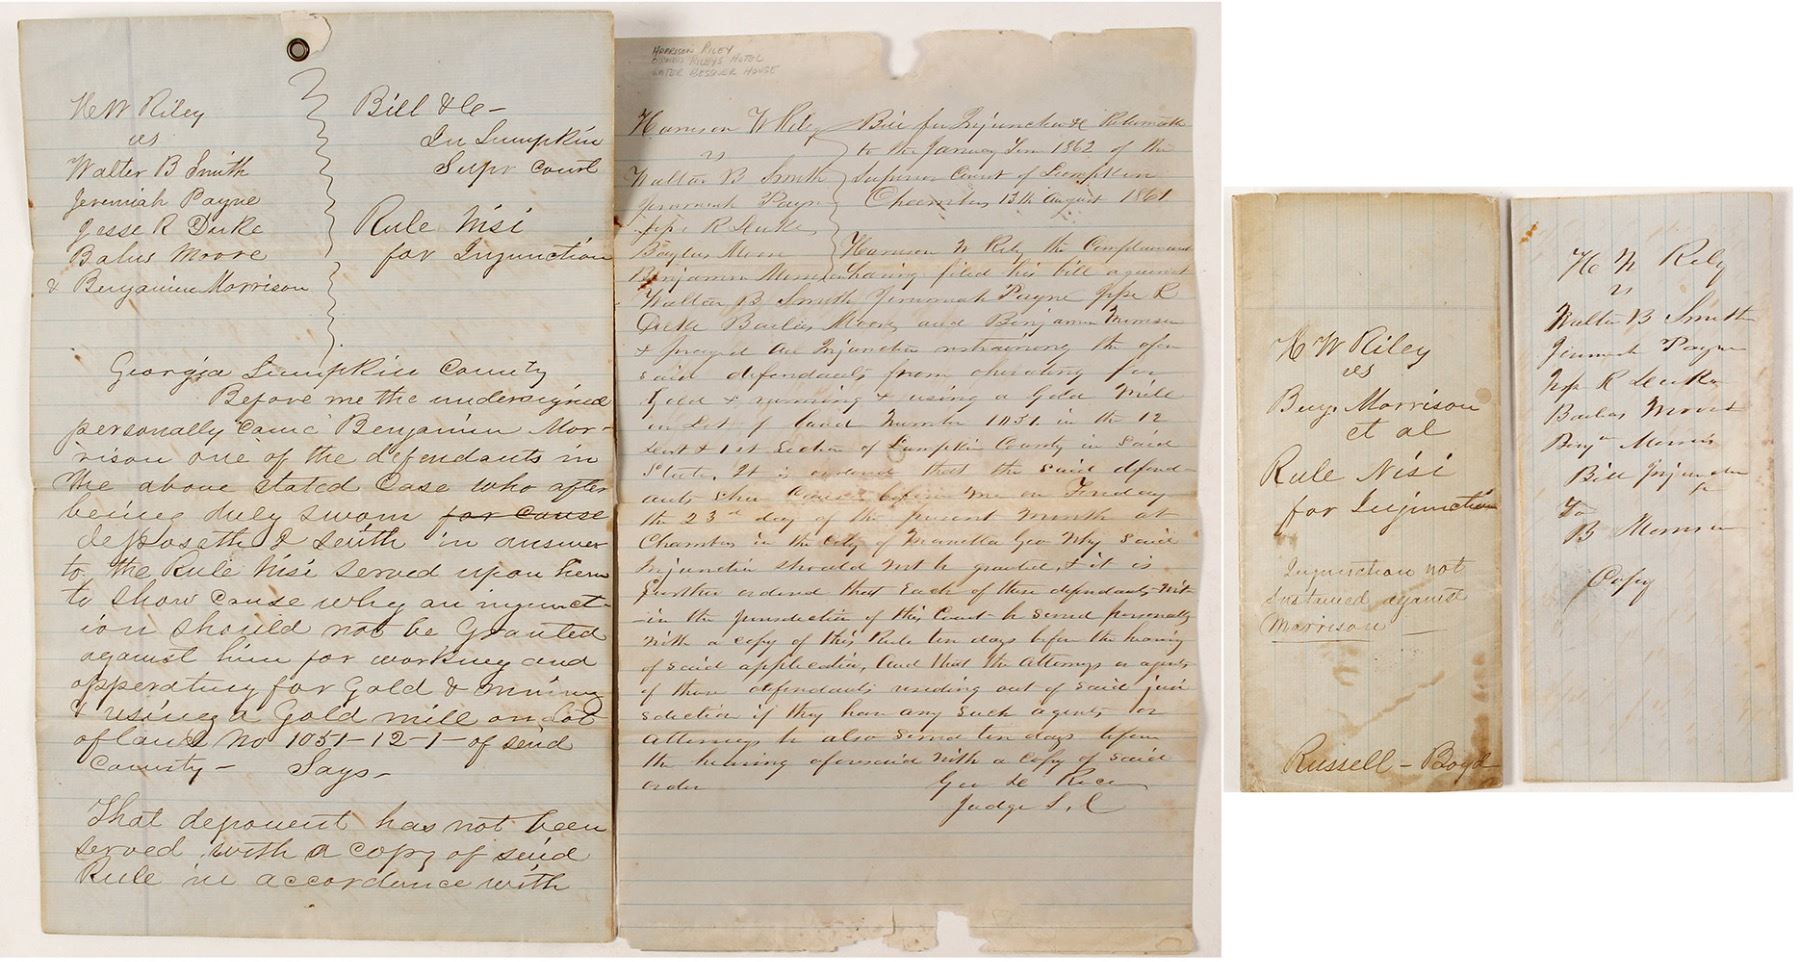 H W Riley
vs
Walter B Smith
Jeremiah Payne
Jesse R Duke
Balus Moore
& Benjamin Morrison
Bill &c-
In Lumpkin
Supr Court
Rule Nisi
for Injunction
Georgia Lumpkin County
Before me the undersigned
personally came Benjamin Mor-
rison one of the defendants in
the above stated Case who after
being duly sworn for cause
deposeth & seith in answer
to the Rule Nisi served upon him
to show cause why an injunct-
ion should not be Granted
against him for working and
opperating for Gold & mining
& using a Gold mill on Lot
of land No 1051-12-1- of seid
County- Says-
That deponent has not been
served with a copy of seid
Rule in accordance with
HARRISON RILEY
OWNED RILEYS HOTEL
LATER BESSER HOUSE
Harrison W Riley
vs
Walter B Smith
Jeremiah Payne
Jesse R Duke
Baylus Moore
Benjamin Morrison
Bill for Injunction &c Returnable
to the January Term 1862 of the
Superior Court of Lumpkin
Chambers 13th August 1861
Harrison W Riley the Complainant
having filed his bill against
Walter B Smith Jeremiah Payne Jesse R
Duke Baylus Moore and Benjamin Morrison
& prayed an Injunction restraining the afore
said defendants from operating for
Gold & mining & using a Gold Mill
on Lot of Land Number 1051 in the 12
Dist & 1st Section of Lumpkin County in said
State. It is ordered that the said defend-
ants shew Cause before me on Friday
the 23rd day of the present month at
Chambers in the City of Marietta Geo Why said
Injunction should not be granted, & it is
further ordered that Each of these defendants with
-in the jurisdiction of this Court be served personally
with a copy of this Rule ten days before the hearing
of said application, And that the Attorneys or agents
of those defendants residing out of said juri
sdiction if they have any such agents or
Attorneys be also served ten days before
the hearing aforesaid with a copy of said
order
Geo D Rice
Judge S. C
H W Riley
vs
Benj. Morrison
et al
Rule Nisi
for Injunction
Injunction not
sustained against
Morrison
Russell - Boyd
H W Riley
vs
Walter B Smith
Jeremiah Payne
Jesse R Duke
Baylus Moore
Benjn Morris
Bill Injunction
To
B Morrison
Copy